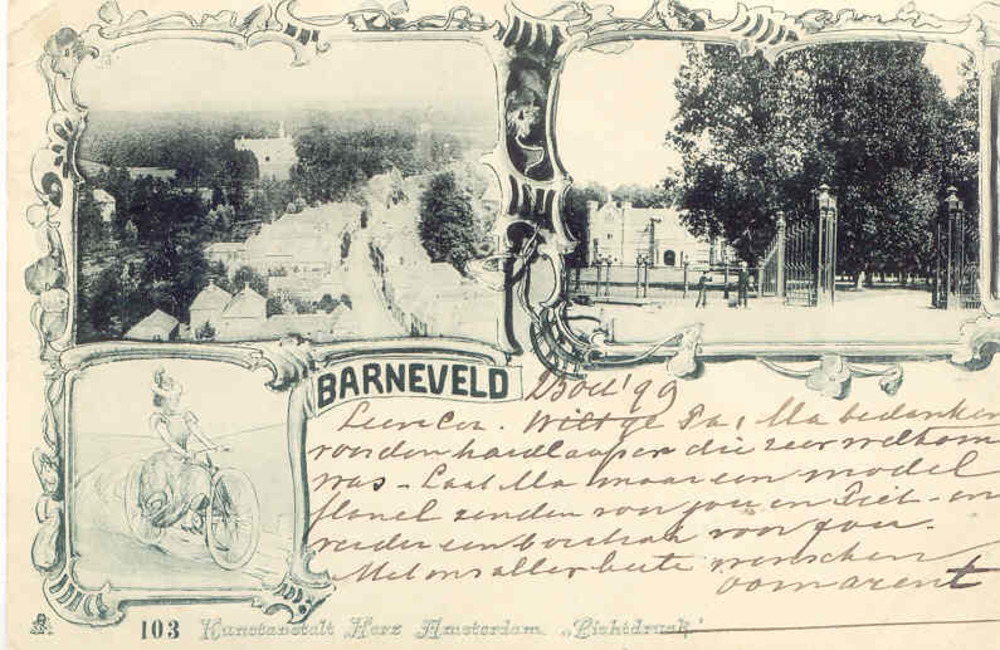 BARNEVELD
23 oct '99
Lieve Cor. Wilt ge Pa, Ma bedanken
voor den hardlooper die zeer welkom
was - Laat Ma maar een model
flanel zenden voor jou en Piet - en
verder een voor jou.
Met ons aller beste wenschen
oom arent
103 Kunstanstalt Herz Amsterdam „Lichtdruck"